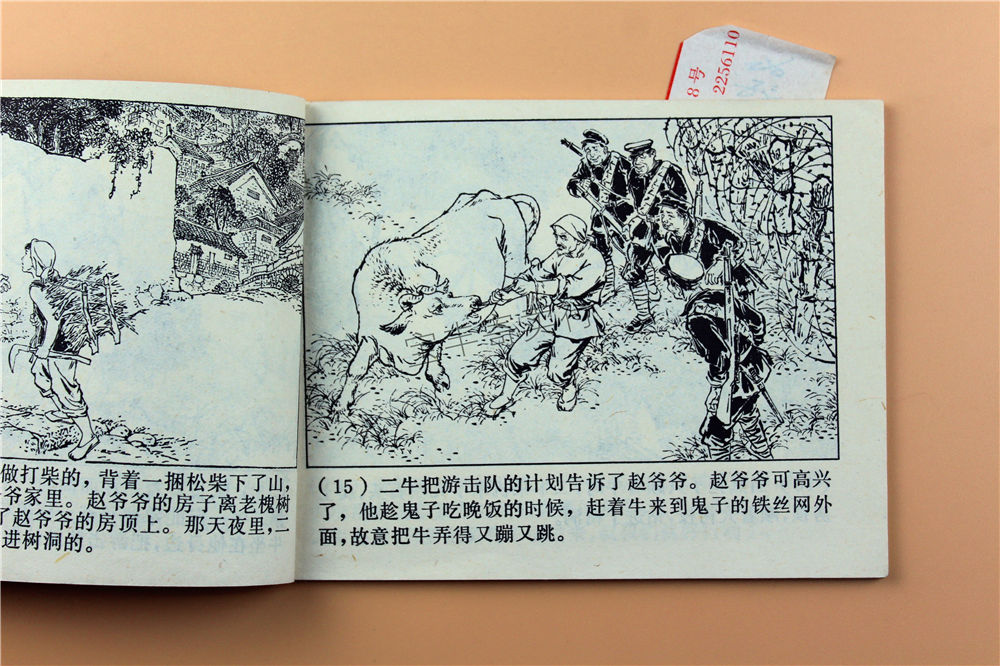 8号
2256110
做打柴的，背着一捆松柴下了山，
爷家里。赵爷爷的房子离老槐树
了赵爷爷的房顶上。那天夜里，二
进树洞的。
（15）二牛把游击队的计划告诉了赵爷爷。赵爷爷可高兴
了，他趁鬼子吃晚饭的时候，赶着牛来到鬼子的铁丝网外
面，故意把牛弄得又蹦又跳。